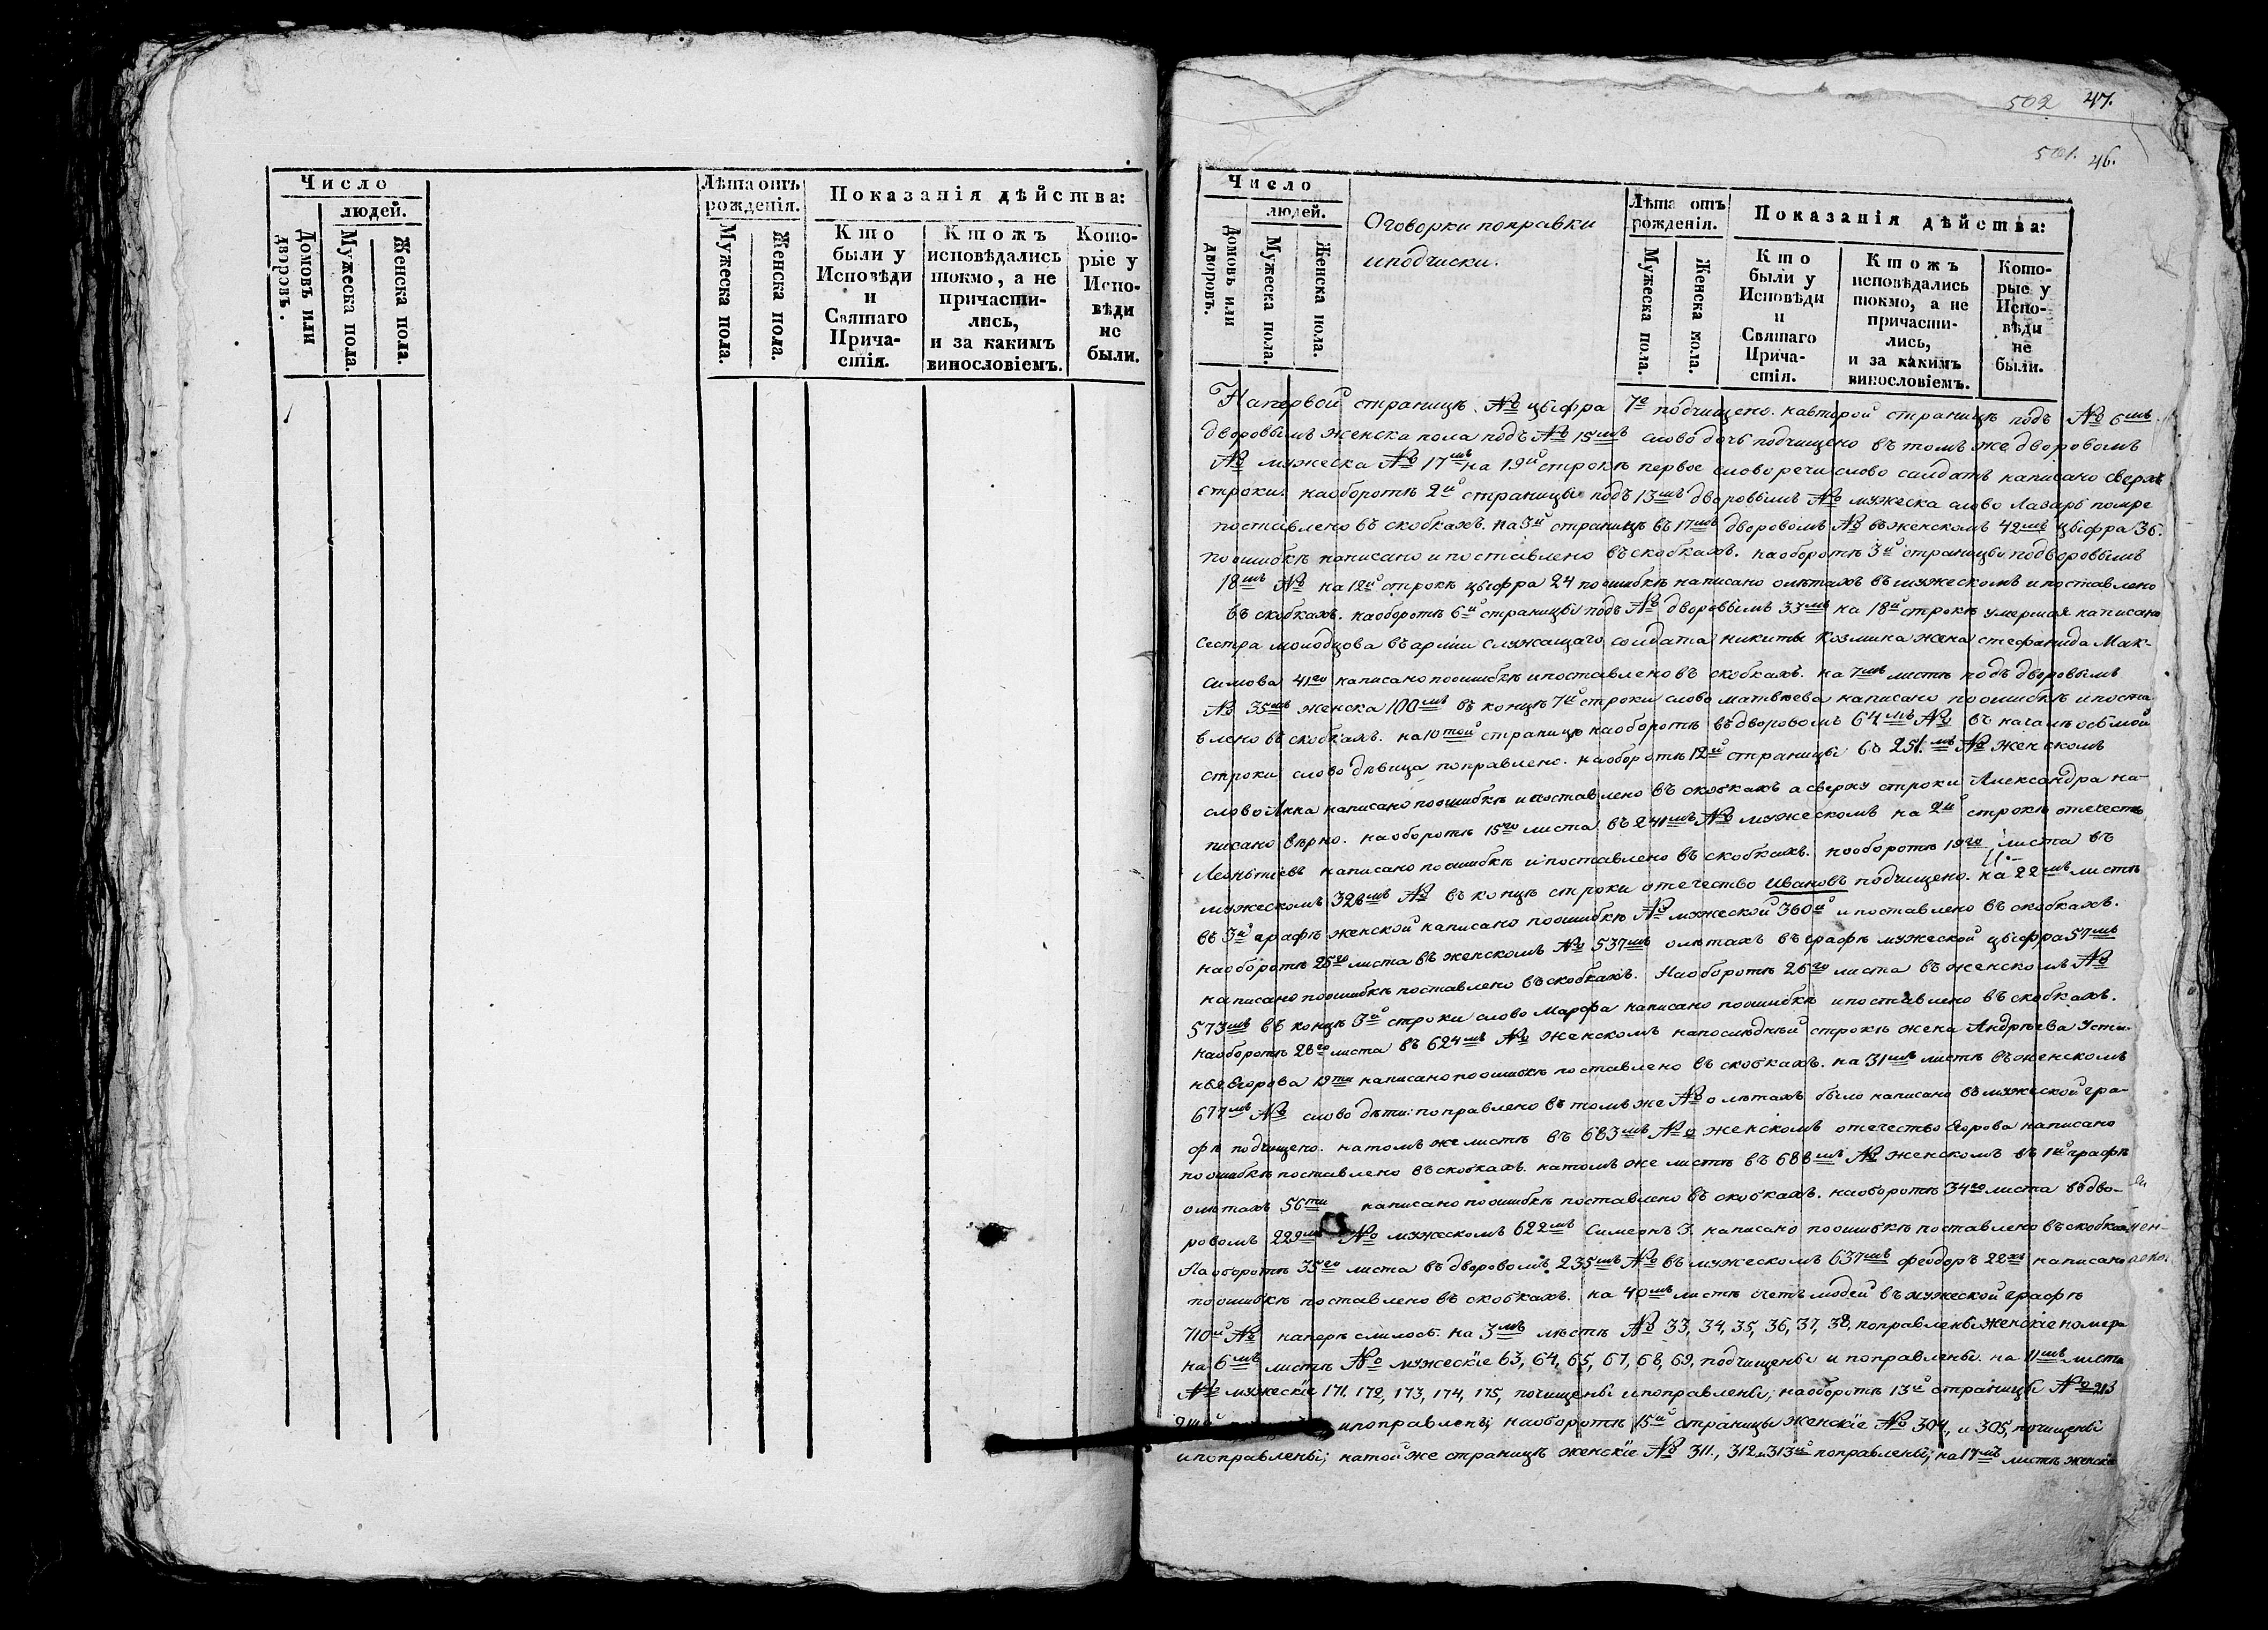 Число
людей.
Домовъ или дворовъ.
Мужеска пола.
Женска пола.
Лѣта отъ рожденія.
Мужеска пола.
Женска пола.
Показанія дѣйства:
Кто
были у
Исповѣди
и
Святаго
Прича-
стія.
Ктожъ
исповѣдались
токмо, а не
причасти-
лись,
и за какимъ
винословіемъ.
Кото-
рые у
Испо-
вѣди
не
были.
502 47.
501. 46.
Число
людей.
Домовъ или дворовъ.
Мужеска пола.
Женска пола.
Оговорки поправки
иподчиски.
Лѣта отъ
рожденія.
Мужеска пола.
Женска пола.
Показанія дѣйства:
Кто
были у
Исповѣди
и
Святаго
Прича-
стія.
Ктожъ
исповѣдались
токмо, а не
причасти-
лись,
и за какимъ
винословіемъ.
Кото-
рые у
Испо-
вѣди
не
были.
Напервой страницѣ № цыфра 7е подчищено. навторой страницѣ подъ № 6мъ.
дворовымъ женска пола подъ № 15мъ слово дочь подчищено въ томъ же дворовомъ
№ мужеска № 17мъ на 19й строкѣ первое слово речи слово салдатъ написано сверхъ
строки. наоборотѣ 2й страницы подъ 13мъ дворовымъ № мужеска слово Лазарь помре
поставлено въ скобкахъ. на 3й страницѣ въ 17мъ дворовомъ № въ женскомъ 42мъ цыфра 36.
поошибкѣ написано и поставлено въ скобкахъ. наоборотѣ 3й страницы подворовымъ
18мъ № на 12й строкѣ цыфра 24 поошибкѣ написано олѣтахъ въ мужескомъ и поставлено
въ скобкахъ. наоборотѣ 6й страницы подъ № дворовымъ 33мъ на 18й строкѣ умершая написано
сестра молодцова въ арміи служащаго солдата никиты Козмина жена стефанида Мак-
симова 41го написано поошибкѣ и поставлено въ скобкахъ. на 7мъ листѣ подъ дворовымъ
№ 35мъ женска 100мъ въ концѣ 7й строки слово матвѣева написано поошибкѣ и поста-
влено въ скобкахъ. на 10той страницѣ наоборотѣ въ дворовомъ 64мъ № въ началѣ осьмой
строки слово дѣвица поправлено. наоборотѣ 12й страницы въ 251.мъ № женскомъ
слово Анна написано поошибкѣ и поставлено въ скобкахъ а сверху строки Александра на-
писано вѣрно. наоборотѣ 15го листа въ 241мъ № мужескомъ на 2й строкѣ отечество
Леонтьевъ написано поошибкѣ и поставлено въ скобкахъ. наоборотѣ 19го листа въ
мужескомъ 328мъ № въ концѣ строки отечество Ивановъ подчищено. на 22мъ листѣ
въ 3й графѣ женской написано поошибкѣ № мужеской 360й и поставлено въ скобкахъ.
наоборотѣ 25го листа въ женскомъ № 537мъ олѣтахъ въ графѣ мужеской цыфра 57мъ
написано поошибкѣ поставлено въ скобкахъ. Наоборотѣ 26го листа въ женскомъ №
573мъ въ концѣ 3й строки слово Марфа написано поошибкѣ и поставлено въ скобкахъ.
наоборотѣ 28го листа въ 624мъ № женскомъ напослѣдней строкѣ жена Андрѣева Усти-
нья Егорова 19ти написано поошибкѣ поставлено въ скобкахъ. на 31мъ листѣ въ женскомъ
677мъ № слово дѣти: поправлено въ томъ же № олѣтахъ было написано въ мужеской гра-
фѣ подчищено. натомъ же листѣ въ 683мъ № женскомъ отечество Егорова написано
поошибкѣ поставлено въ скобкахъ. натомъ же листѣ въ 688мъ № женскомъ въ 1й графѣ
олѣтахъ 56ти написано поошибкѣ поставлено въ скобкахъ. наоборотѣ 34го листа въ дво-
ровомъ 229мъ № мужескомъ 622мъ Симеонъ 3. написано поошибкѣ поставлено въ скобкахъ
Наоборотѣ 35го листа въ дворовомъ 235мъ № въ мужескомъ 637мъ феодоръ 22хъ написано
поошибкѣ поставлено въ скобкахъ. на 40мъ листѣ счетъ людей въ мужеской графѣ
710й № слилось. на 3мъ листѣ № 33, 34, 35, 36, 37, 38, поправлены женскіе номера
на 6мъ листѣ № мужескіе 63, 64, 65, 67, 68, 69, подчищены и поправлены. на 11мъ листѣ
№ мужескіе 171. 172, 173, 174, 175, почищены ипоправлены; наоборотѣ 13й страницы № 213
ипоправлены; наоборотѣ 15й страницы женскіе № 304, и 305, почищены
ипоправлены; натой же страницѣ женскіе № 311., 312 и 313й поправлены; на 17мъ листѣ женскіе